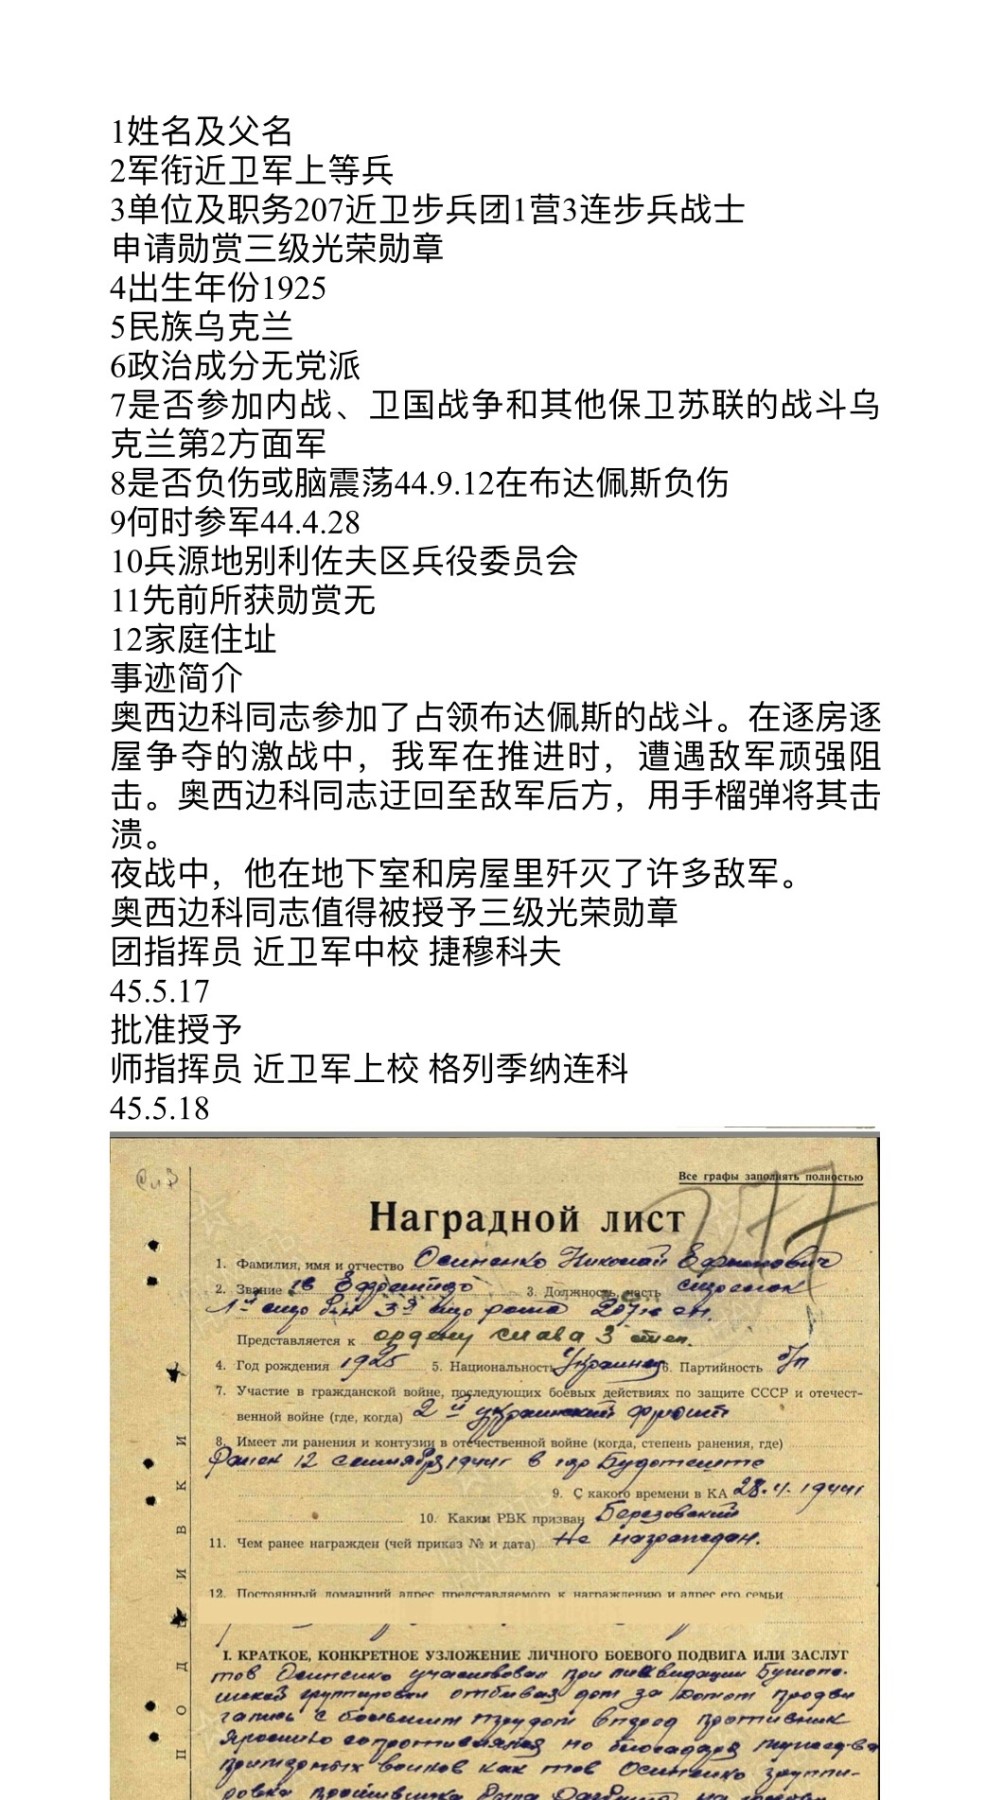 1姓名及父名
2军衔近卫军上等兵
3单位及职务207近卫步兵团1营3连步兵战士
申请勋赏三级光荣勋章
4出生年份1925
5民族乌克兰
6政治成分无党派
7是否参加内战、卫国战争和其他保卫苏联的战斗乌
克兰第2方面军
8是否负伤或脑震荡44.9.12在布达佩斯负伤
9何时参军44.4.28
10兵源地别利佐夫区兵役委员会
11先前所获勋赏无
12家庭住址
事迹简介
奥西边科同志参加了占领布达佩斯的战斗。在逐房逐
屋争夺的激战中，我军在推进时，遭遇敌军顽强阻
击。奥西边科同志迂回至敌军后方，用手榴弹将其击
溃。
夜战中，他在地下室和房屋里歼灭了许多敌军。
奥西边科同志值得被授予三级光荣勋章
团指挥员 近卫军中校 捷穆科夫
45.5.17
批准授予
师指挥员 近卫军上校 格列季纳连科
45.5.18
Все графы заполнять полностью
Наградной лист
1. Фамилия, имя и отчество Осипенко Николай Ефимович
2. Звание гв Ефрейтор 3. Должность, часть стрелок
3й 207
Представляется к ордену слава 3 степ.
4. Год рождения 1925 5. Национальность Украинец 6. Партийность б/п
7. Участие в гражданской войне, последующих боевых действиях по защите СССР и отечест-
венной войне (где, когда) 2й украинский фронт
8. Имеет ли ранения и контузии в отечественной войне (когда, степень ранения, где)
Ранен 12 сентября 1944г в гор Будапеште
9. С какого времени в КА 28.4.1944г
10. Каким РВК призван Березовский
11. Чем ранее награжден (чей приказ № и дата) Не награждан.
12. Постоянный домашний адрес представляемого к награждению и адрес его семьи
I. КРАТКОЕ, КОНКРЕТНОЕ УЗЛОЖЕНИЕ ЛИЧНОГО БОЕВОГО ПОДВИГА ИЛИ ЗАСЛУГ
тов Осипенко участвовал при ликвидации
группировки отбивая дом за домом продви
с большим трудом вперед противник
но благодаря
как тов Осипенко группи-
ровка была
П О Д Ш И В К И